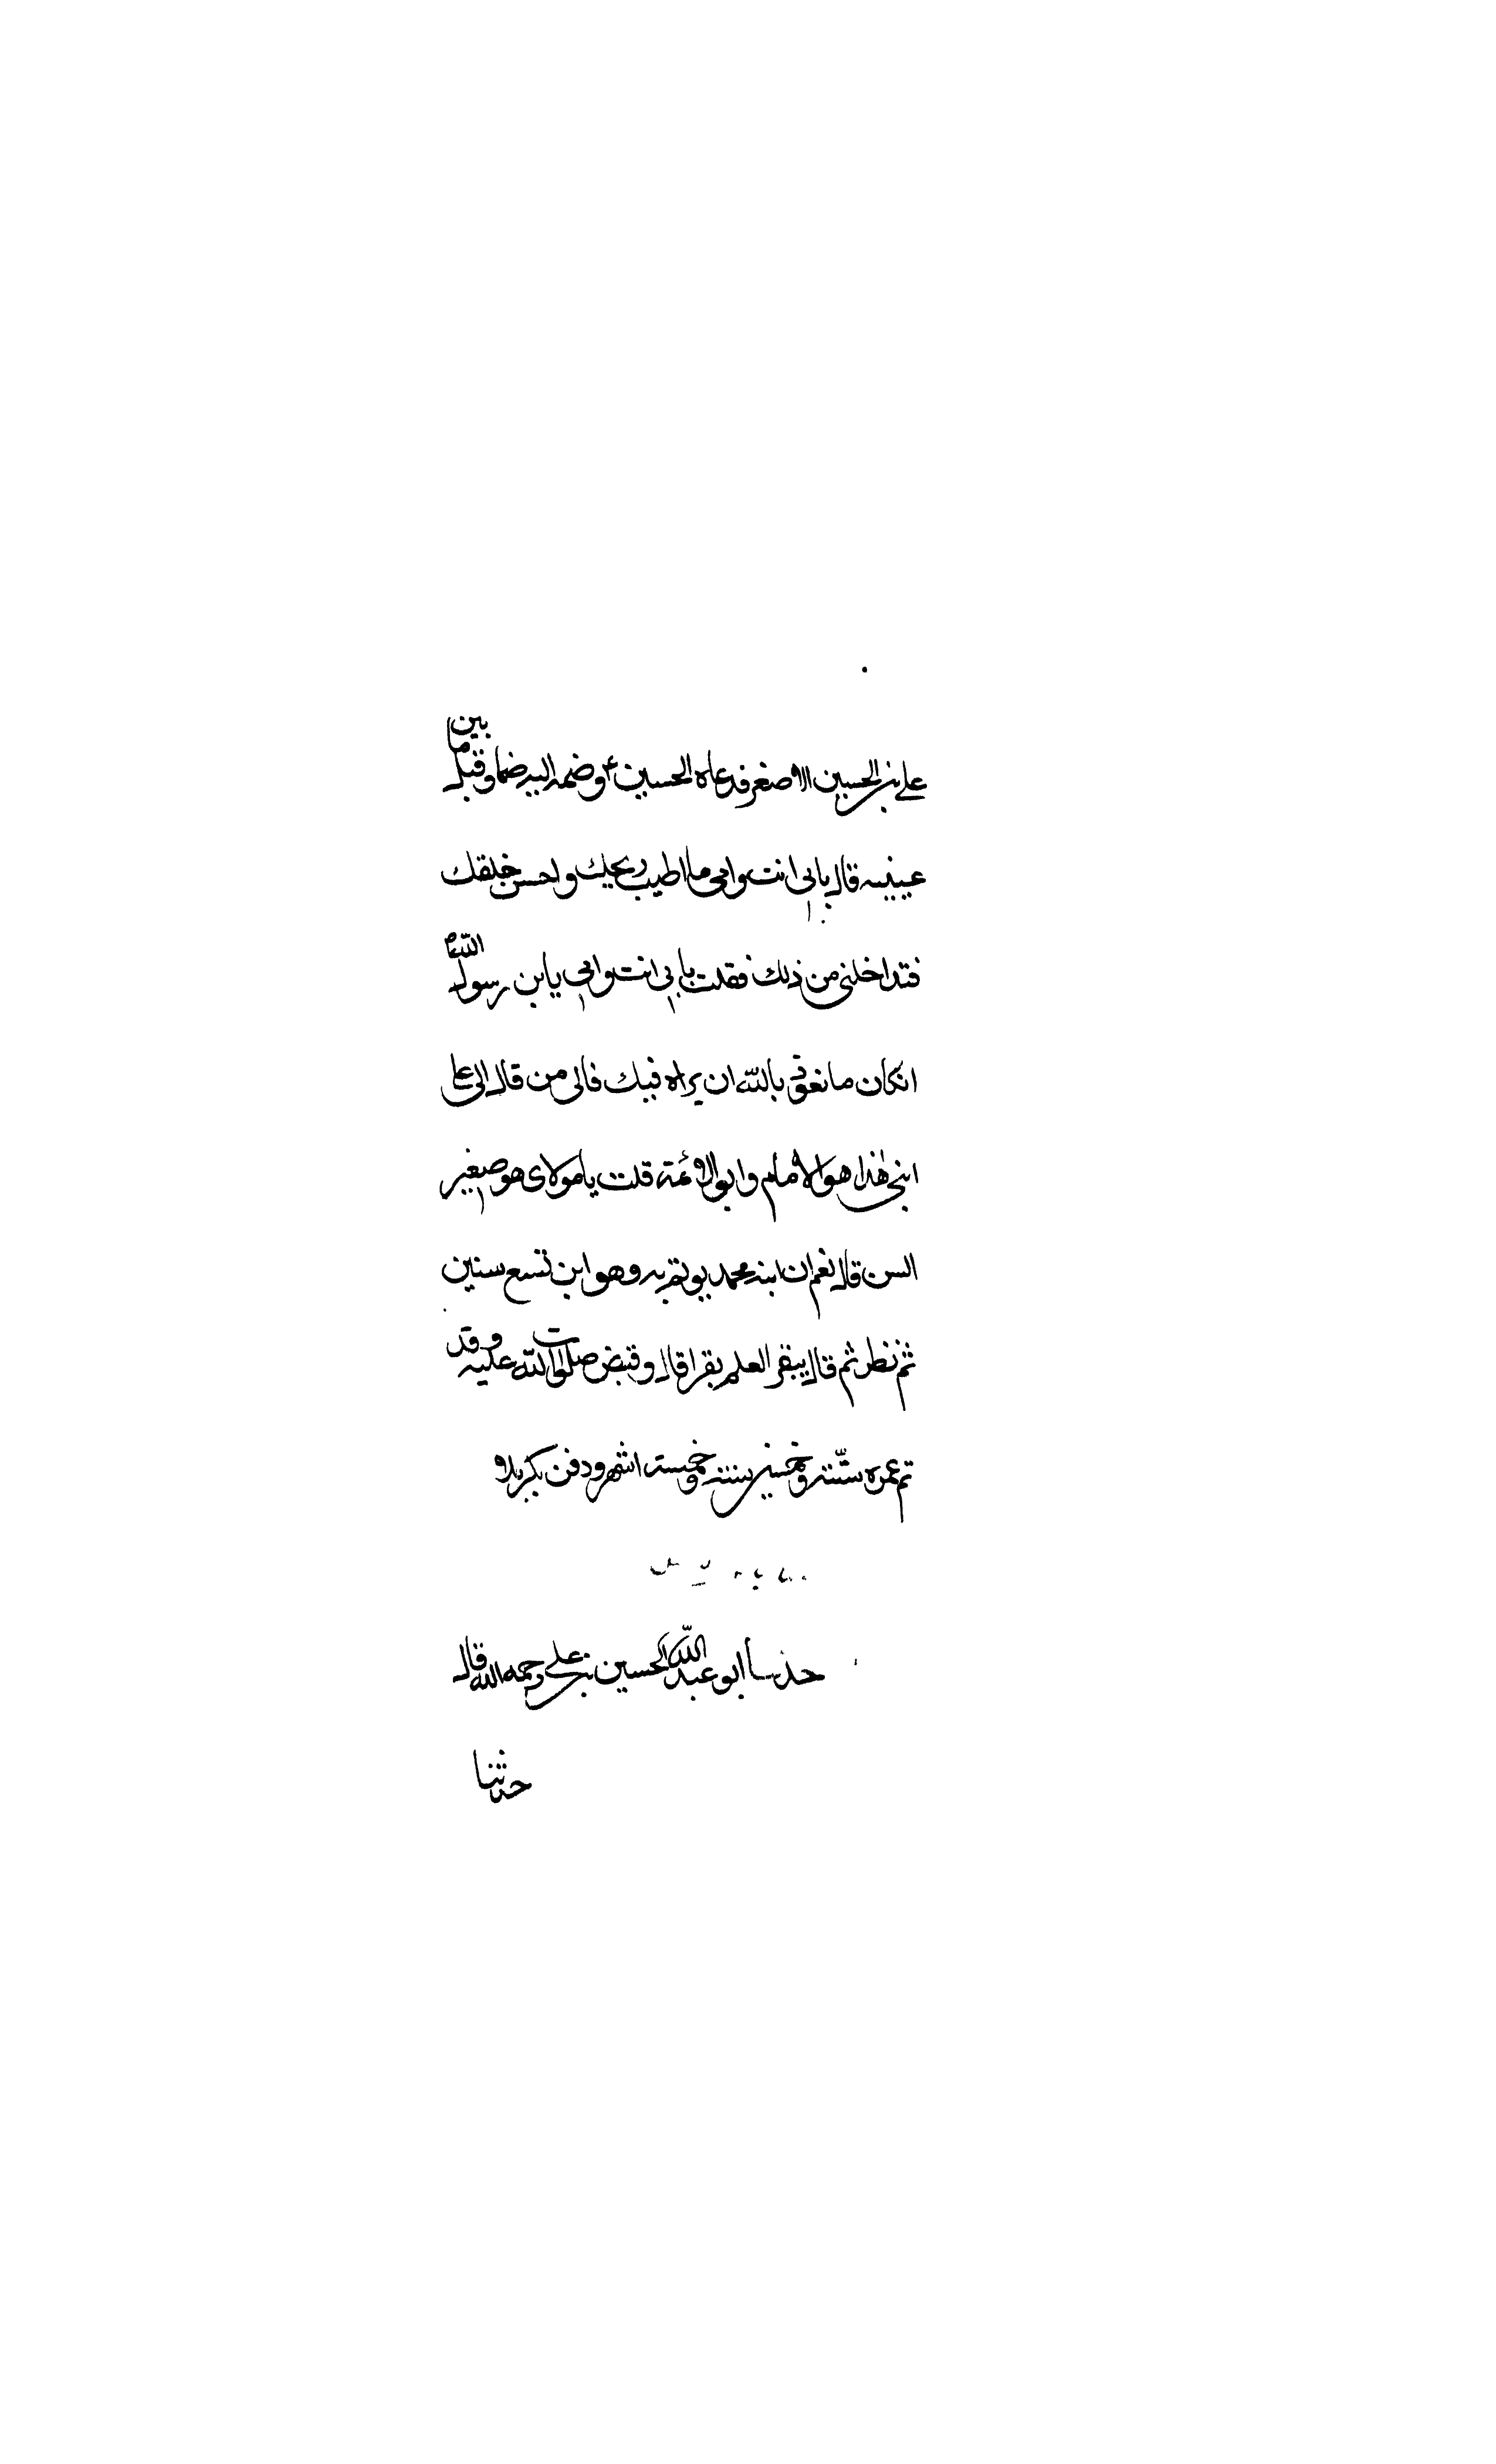 علي بن الحسين الاصغر فدعاه الحسين ع وضمه اليه ضما وقبل ما بين
عينيه قال بابي انت وامي ما اطيب ريحك واحسن خلقك
فتداخلني من ذلك فقلت بابي انت وامي يا بن رسول الله
انكان ما نعوذ بالله ان نراه فيك فالى من قال الى علي
ابني هذا هو الامام وابو الائمة قلت يا مولاى هو صغير
السن قال نعم ان ابنه محمد يوتم به وهو ابن تسع سنين
ثم نطر ثم قال يبقر العلم بقرا قال وقبض صلوات الله عليه وقد
تم عمره ستّة وخمسين سنة وخمسة اشهر ودفن بكربلا
حدثنا ابو عبد الله الحسين بن علي رحمه الله قال
حدثنا